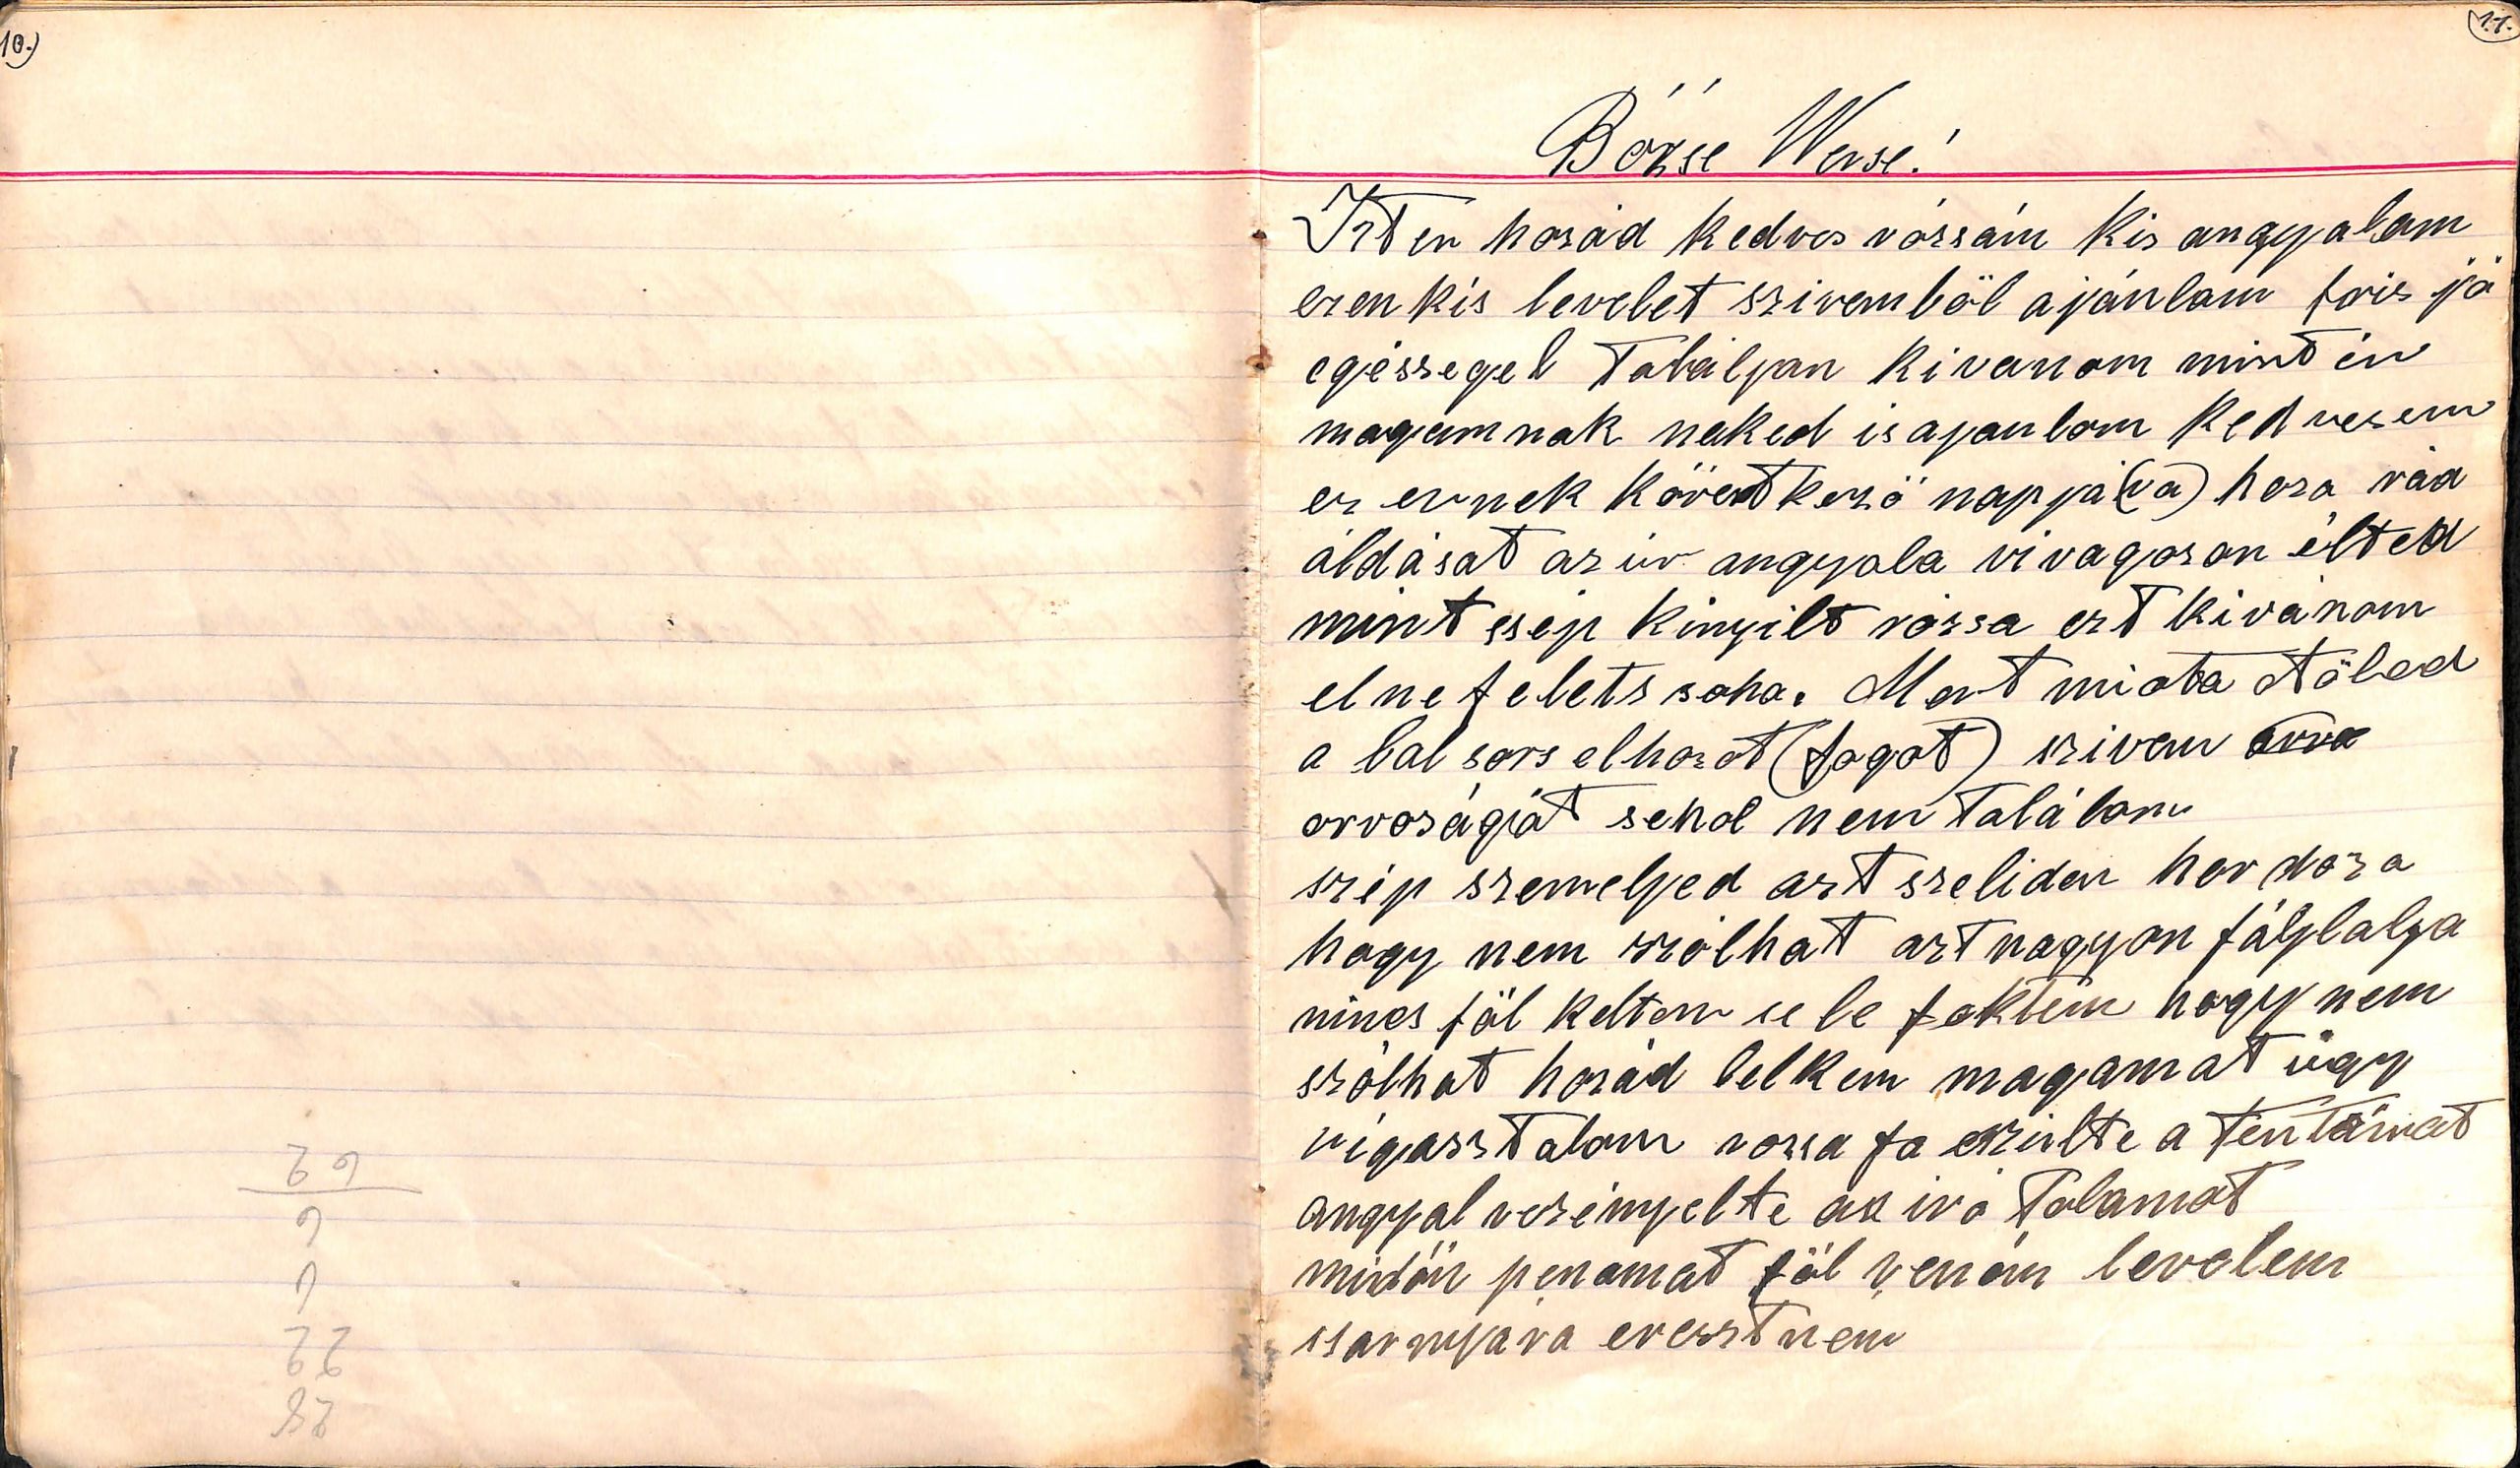 10.)
11.
Bözse Verse!
Irt én hozád kedves rózsám kis angyalam
ezen kis levelet szivemböl ajánlam fris jó
egésségel találjan kivanom mint én
magamnak neked is ajanlom kedvesem
ez ennek kövertkező napjá(va) hoza rád
áldását az úr angyala virágozon élted
mint szép kinyilt rózsa ezt kivánom
el ne felets soha. Mert miota tőled
a bal sors elhozot (fogot) szivem
orvoságját sehol nem találom
szép szemelyed azt szeliden hordoza
hogy nem szólhat azt nagyon fájlalja
nincs föl keltem se le fektém hogy nem
szólhat hozád lelkem magamat úgy
vigasztalom rozsa fa szülte a tentámat
angyal vezényelte az iró talamat
midőn penámat föl venám levelem
szarnyára eresztném
69
6
22
28